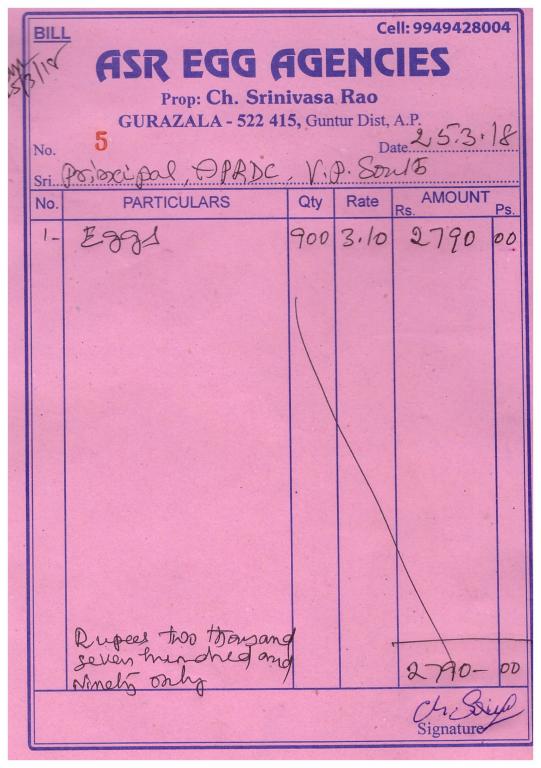 BILL
Cell: 9949428004
ASR EGG AGENCIES
Prop: Ch. Srinivasa Rao
GURAZALA - 522 415, Guntur Dist, A.P.
No. 5 Date 25.3.18
Sri. Principal, APRDC, V.P. South
No. PARTICULARS Qty Rate AMOUNT
Rs. Ps.
1- Eggs 900 3.10 2790 00
Rupees two thousand
seven hundred and
Ninety only
2790- 00
Signature